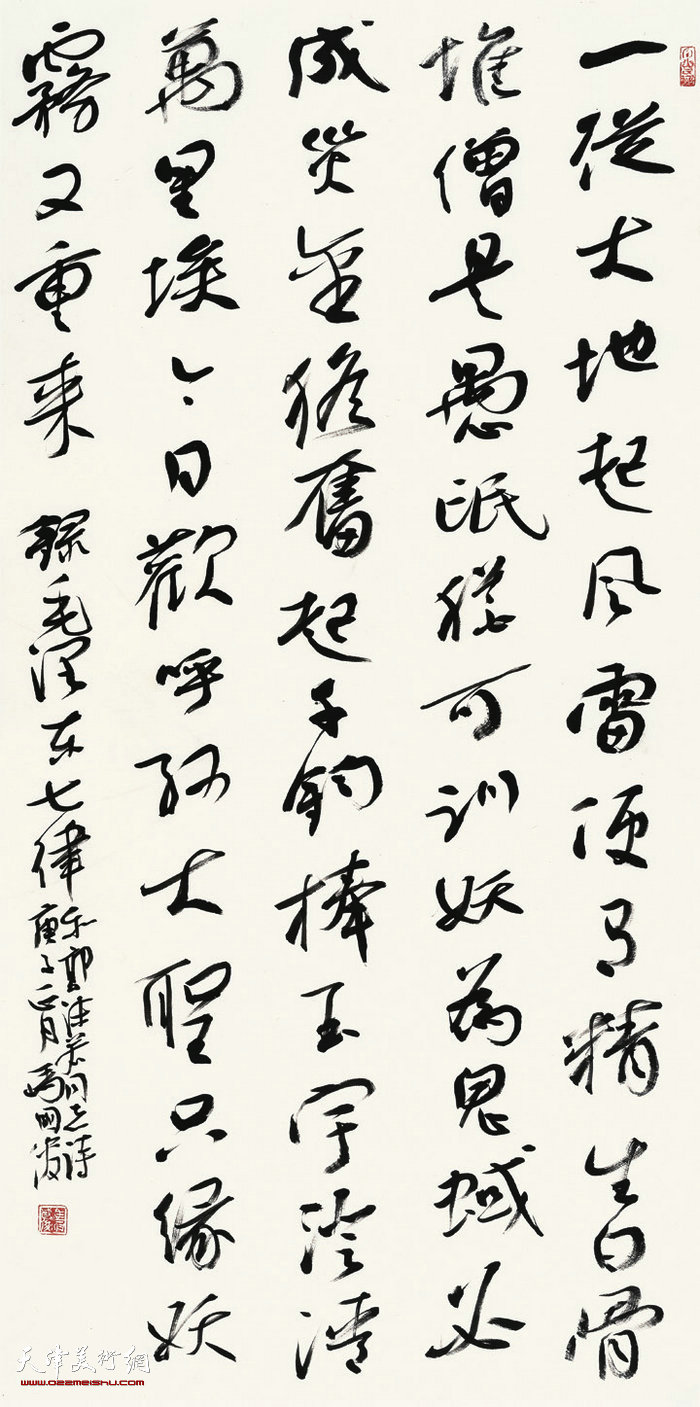 一從大地起风雷便有精生白骨
堆僧是愚氓猶可訓妖為鬼蜮必
成災金猴奮起千鈞棒玉宇澄清
萬里埃今日歡呼孫大聖只緣妖
霧又重來 錄毛澤東七律
和郭沫若同志詩
庚子正月
天津美術網
www.022meishu.com